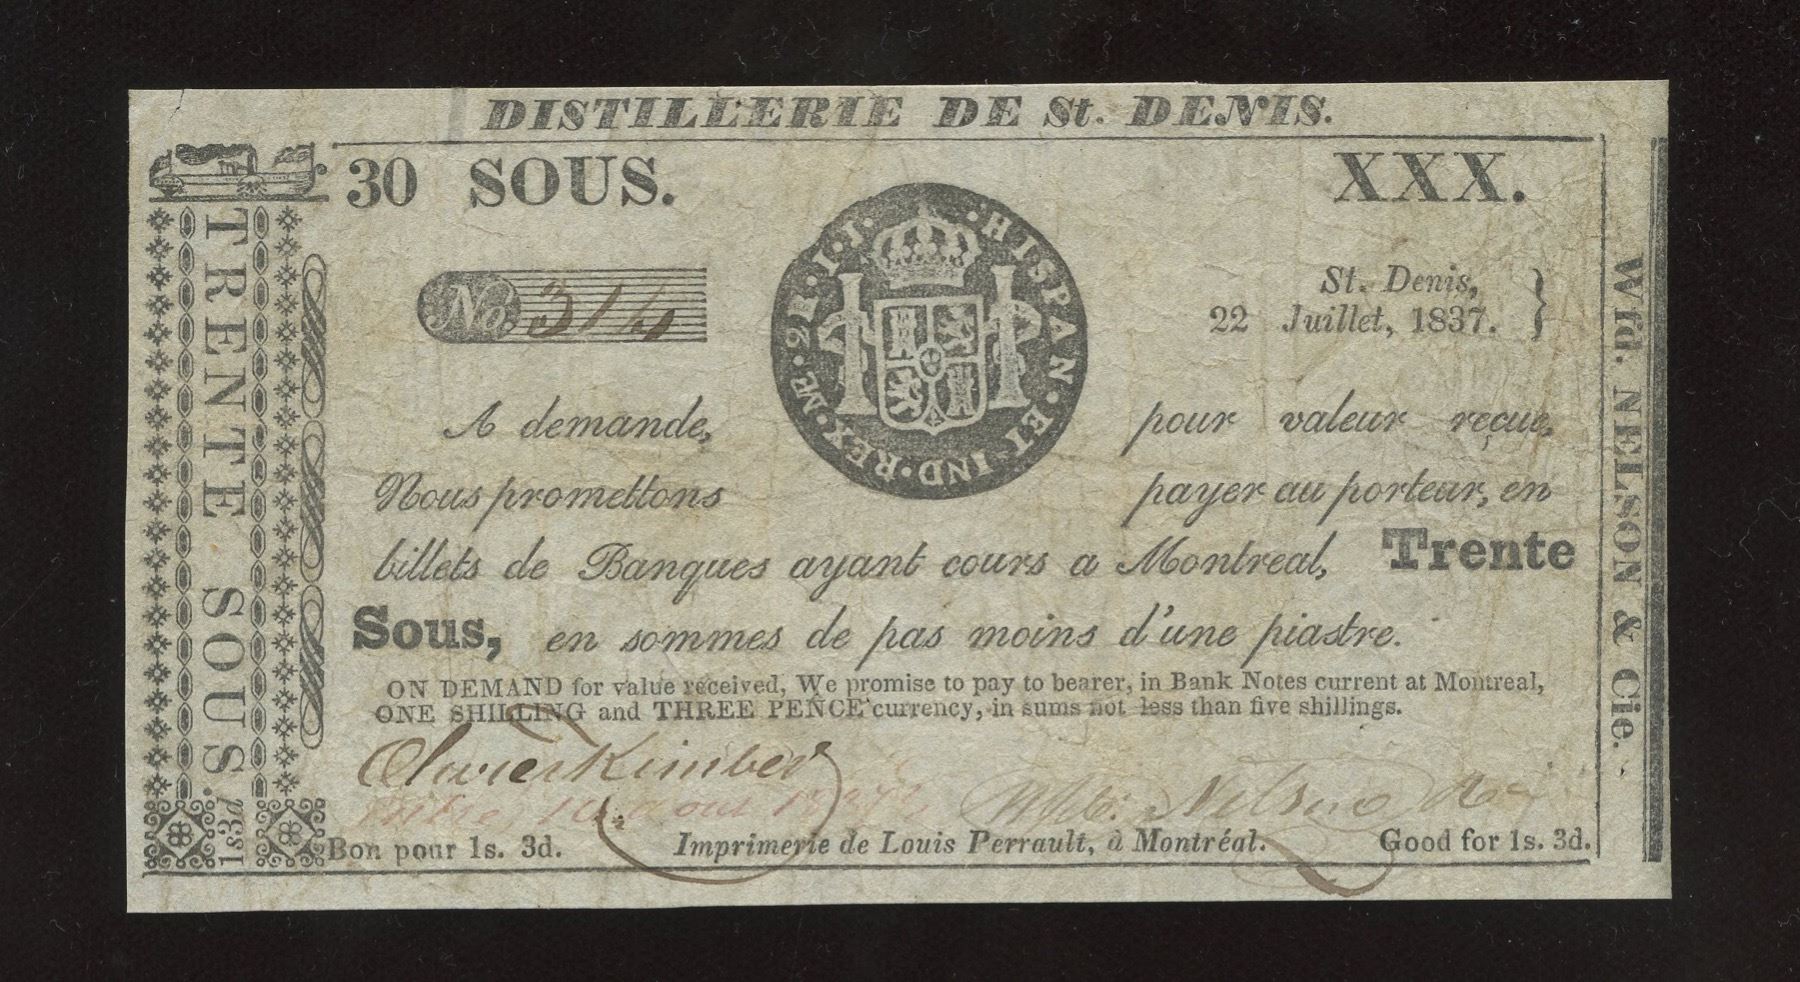 DISTILLERIE DE St. DENIS.
30 SOUS.
XXX.
TRENTE SOUS.
1s3d
No. 314
HISPAN·ET IND·REX·ME·2R·I·I·
St. Denis,
22 Juillet, 1837.
Wfd. NELSON & Cie.
A demande, pour valeur reçue,
Nous promettons payer au porteur, en
billets de Banques ayant cours a Montreal, Trente
Sous, en sommes de pas moins d'une piastre.
ON DEMAND for value received, We promise to pay to bearer, in Bank Notes current at Montreal,
ONE SHILLING and THREE PENCE currency, in sums not less than five shillings.
Olivier Kimber
Wfd. Nelson
Bon pour 1s. 3d.
Imprimerie de Louis Perrault, à Montréal.
Good for 1s. 3d.